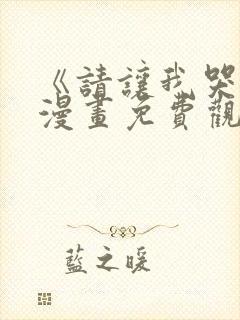 《請讓我哭
漫畫免費觀
藍之暖